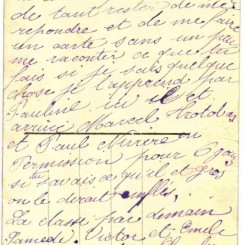 de tant rester de me
repondre et de me faire
un carte sans un peu
me raconter ce que tu
fais si je sais quelque
chose je l'apprend par
Pauline ici est
arrivé Marcel
et Paul en
Permission pour 6 jours
si tu savais ce qu'il et gros
on le dirait enflés,
La classe par demain
Samedi Victor et Emile